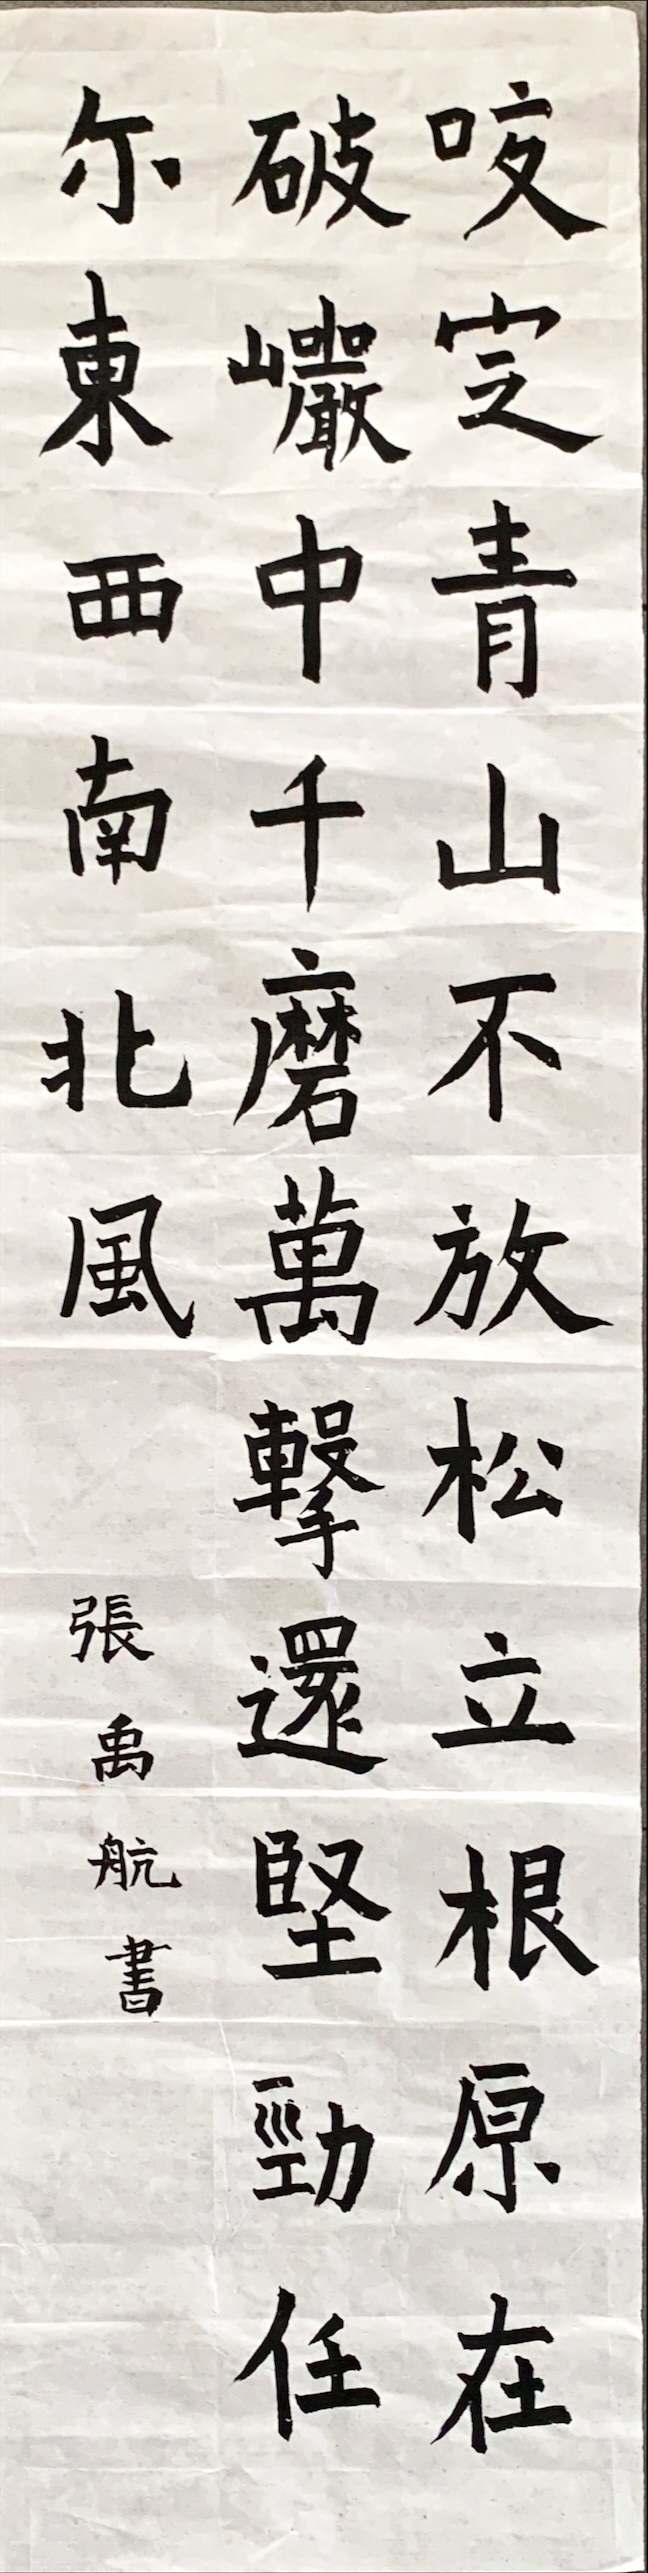 咬定青山不放松立根原在
破巗中千磨萬擊還堅勁任
尔東西南北風
張禹航書